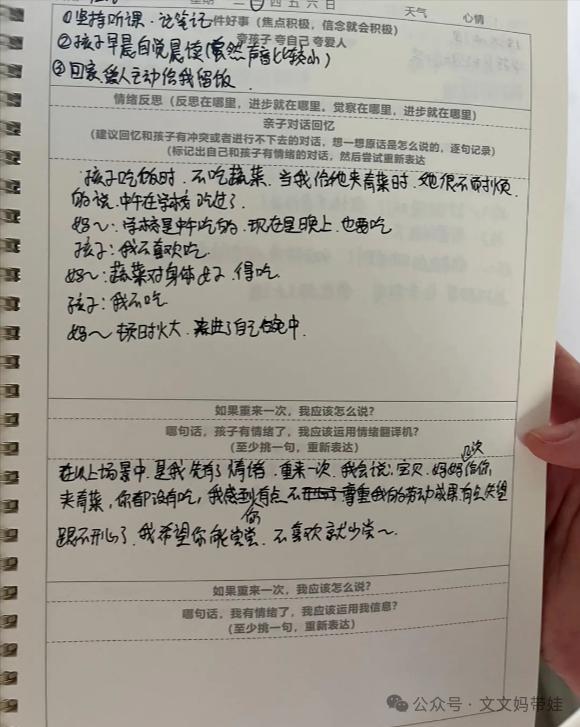 四 五 六 日 天气 心情
①坚持听课、记笔记
件好事（焦点积极，信念就会积极）
夸孩子 夸自己 夸爱人
②孩子早晨自觉晨读(虽然声音比较小)
③回家爱人主动给我留饭
情绪反思（反思在哪里，进步就在哪里，觉察在哪里，进步就在哪里）
亲子对话回忆
(建议回忆和孩子有冲突或者进行不下去的对话，想一想原话是怎么说的，逐句记录)
(标记出自己和孩子有情绪的对话，然后尝试重新表达
孩子吃饭时、不吃蔬菜、当我给他夹青菜时、她很不耐烦
的说、中午在学校吃过了.
妈～：学校是中午吃的、现在是晚上、也要吃
孩子：我不喜欢吃.
妈～：蔬菜对身体好、得吃.
孩子：我不吃
妈～ 顿时火大、夹进了自己碗中.
如果重来一次，我应该怎么说？
哪句话，孩子有情绪了，我应该运用情绪翻译机？
(至少挑一句，重新表达)
在以上场景中、是我先有了情绪、重来一次、我会说：宝贝、妈妈几次给你
夹青菜，你都没有吃，我感到你有点不尊重我的劳动成果有点失望
跟不开心了、我希望你能尝尝、不喜欢就少尝～.
如果重来一次，我应该怎么说？
哪句话，我有情绪了，我应该运用我信息？
(至少挑一句，重新表达)
公众号·文文妈带娃